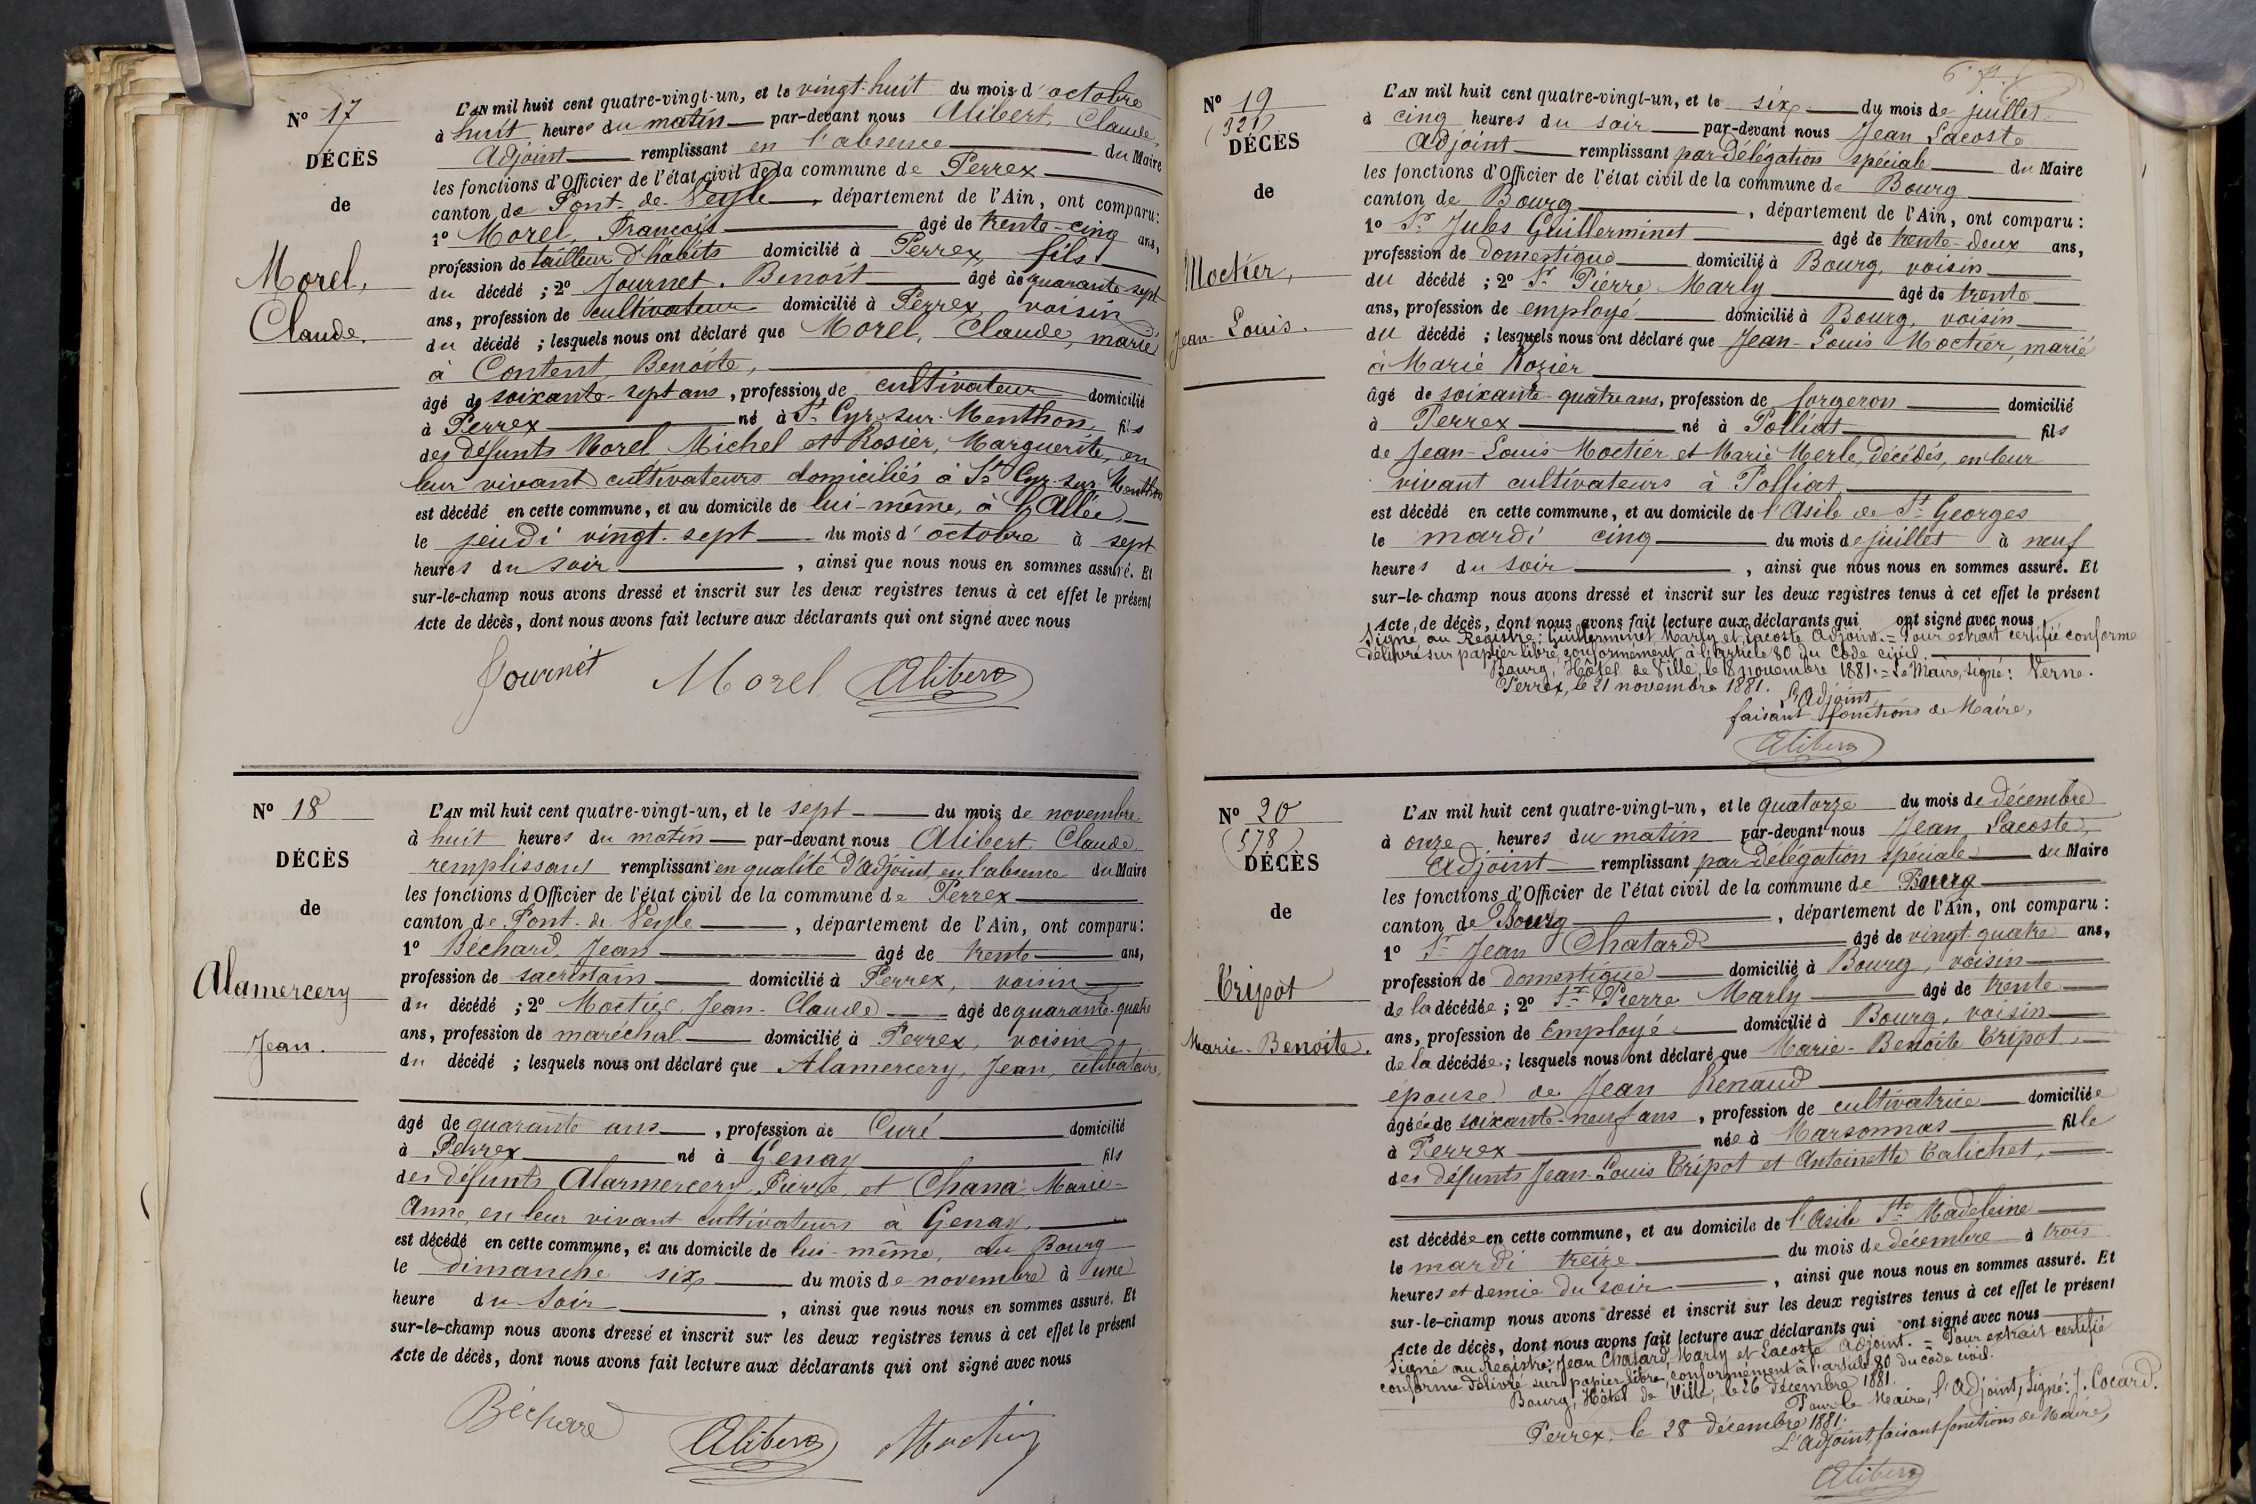 N° 17
DÉCÈS
de
Morel,
Claude.
L'AN mil huit cent quatre-vingt-un, et le vingt-huit du mois d'octobre
à huit heures du matin par-devant nous Alibert, Claude,
Adjoint remplissant en l'absence du Maire
les fonctions d'Officier de l'état civil de la commune de Perrex
canton de Pont-de-Veyle, département de l'Ain, ont comparu:
1° Morel, François âgé de trente-cinq ans,
profession de tailleur d'habits domicilié à Perrex, fils
du décédé ; 2° Journet, Benoît âgé de quarante-sept
ans, profession de cultivateur domicilié à Perrex, voisin
du décédé ; lesquels nous ont déclaré que Morel, Claude, marié
à Content, Benoîte,
âgé de soixante-sept ans, profession de cultivateur domicilié
à Perrex né à St Cyr-sur-Menthon, fils
des défunts Morel Michel et Rosier, Marguerite, en
leur vivant cultivateurs domiciliés à St Cyr-sur-Menthon
est décédé en cette commune, et au domicile de lui-même, à l'Allée,
le jeudi vingt-sept du mois d'octobre à sept
heures du soir, ainsi que nous nous en sommes assuré. Et
sur-le-champ nous avons dressé et inscrit sur les deux registres tenus à cet effet le présent
Acte de décès, dont nous avons fait lecture aux déclarants qui ont signé avec nous
Journet Morel Alibert
N° 18
DÉCÈS
de
Alamercery
Jean.
L'AN mil huit cent quatre-vingt-un, et le sept du mois de novembre
à huit heures du matin par-devant nous Alibert, Claude,
remplissant remplissant en qualité d'Adjoint, en l'absence du Maire
les fonctions d'Officier de l'état civil de la commune de Perrex
canton de Pont-de-Veyle, département de l'Ain, ont comparu:
1° Béchard, Jean âgé de trente ans,
profession de sacristain domicilié à Perrex, voisin
du décédé ; 2° Moctier, Jean-Claude âgé de quarante-quatre
ans, profession de maréchal domicilié à Perrex, voisin
du décédé ; lesquels nous ont déclaré que Alamercery, Jean, célibataire,
âgé de quarante ans, profession de Curé domicilié
à Perrex né à Genay fils
des défunts Alarmercery, Pierre, et Chana Marie-
Anne, en leur vivant cultivateurs à Genay,
est décédé en cette commune, et au domicile de lui-même, au Bourg
le dimanche six du mois de novembre à une
heure du soir, ainsi que nous nous en sommes assuré. Et
sur-le-champ nous avons dressé et inscrit sur les deux registres tenus à cet effet le présent
Acte de décès, dont nous avons fait lecture aux déclarants qui ont signé avec nous
Béchard Alibert Moctier
N° 19
(321)
DÉCÈS
de
Moctier,
Jean-Louis.
L'AN mil huit cent quatre-vingt-un, et le six du mois de juillet
à cinq heures du soir par-devant nous Jean Lacoste
Adjoint remplissant par Délégation spéciale du Maire
les fonctions d'Officier de l'état civil de la commune de Bourg
canton de Bourg, département de l'Ain, ont comparu:
1° Sr Jules Guillerminet âgé de trente-deux ans,
profession de domestique domicilié à Bourg, voisin
du décédé ; 2° Sr Pierre Marly âgé de trente
ans, profession de employé domicilié à Bourg, voisin
du décédé ; lesquels nous ont déclaré que Jean-Louis Moctier, marié
à Marie Rozier
âgé de soixante-quatre ans, profession de forgeron domicilié
à Perrex né à Polliat fils
de Jean-Louis Moctier et Marie Merle, décédés, en leur
vivant cultivateurs à Polliat
est décédé en cette commune, et au domicile de l'Asile de St Georges
le mardi cinq du mois de juillet à neuf
heures du soir, ainsi que nous nous en sommes assuré. Et
sur-le-champ nous avons dressé et inscrit sur les deux registres tenus à cet effet le présent
Acte de décès, dont nous avons fait lecture aux déclarants qui ont signé avec nous
Signé au Registre: Guillerminet, Marly et Lacoste Adjoint. = Pour extrait certifié conforme
délivré sur papier libre, conformément à l'article 80 du Code civil.
Bourg, Hôtel de Ville, le 18 novembre 1881. = Le Maire, signé: Verne.
Perrex, le 21 novembre 1881.
L'Adjoint
faisant fonctions de Maire,
Alibert
N° 20
(578)
DÉCÈS
de
Tripot
Marie-Benoîte.
L'AN mil huit cent quatre-vingt-un, et le quatorze du mois de décembre
à onze heures du matin par-devant nous Jean Lacoste,
Adjoint remplissant par Délégation spéciale du Maire
les fonctions d'Officier de l'état civil de la commune de Bourg
canton de Bourg, département de l'Ain, ont comparu:
1° Sr Jean Chatard âgé de vingt-quatre ans,
profession de domestique domicilié à Bourg, voisin
de la décédée ; 2° Sr Pierre Marly âgé de trente
ans, profession de Employé domicilié à Bourg, voisin
de la décédée ; lesquels nous ont déclaré que Marie-Benoîte Tripot,
épouse de Jean Renaud
âgée de soixante-neuf ans, profession de cultivatrice domiciliée
à Perrex née à Marsonnas fille
des défunts Jean-Louis Tripot et Antoinette Calichet,
est décédée en cette commune, et au domicile de l'Asile Ste Madeleine
le mardi treize du mois de décembre à trois
heures et demie du soir, ainsi que nous nous en sommes assuré. Et
sur-le-champ nous avons dressé et inscrit sur les deux registres tenus à cet effet le présent
Acte de décès, dont nous avons fait lecture aux déclarants qui ont signé avec nous
Signé au Registre: Jean Chatard, Marly et Lacoste Adjoint. = Pour extrait certifié
conforme délivré sur papier libre, conformément à l'article 80 du code civil.
Bourg, Hôtel de Ville, le 26 décembre 1881.
Pour le Maire, l'Adjoint, signé: J. Cocard.
Perrex, le 28 décembre 1881.
L'Adjoint faisant fonctions de Maire,
Alibert